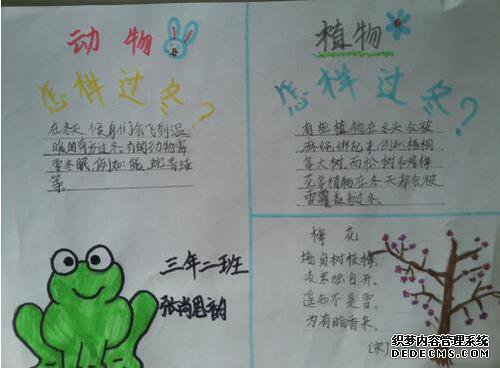 动物
怎样过冬?
在冬天,候鸟们会飞到温
暖的南方过冬,有的动物需
要冬眠,例如:熊、蛇、青蛙
等。
三年二班
张尚恩韵
植物
怎样过冬?
有些植物在冬天会被
麻绳绑起来,例如梧桐
等大树,而松树和腊梅
花等植物在冬天都会被
雪覆盖着过冬。
梅 花
墙角树枝梅,
凌寒独自开。
遥知不是雪,
为有暗香来。
〔宋〕
思博内容管理系统
www.